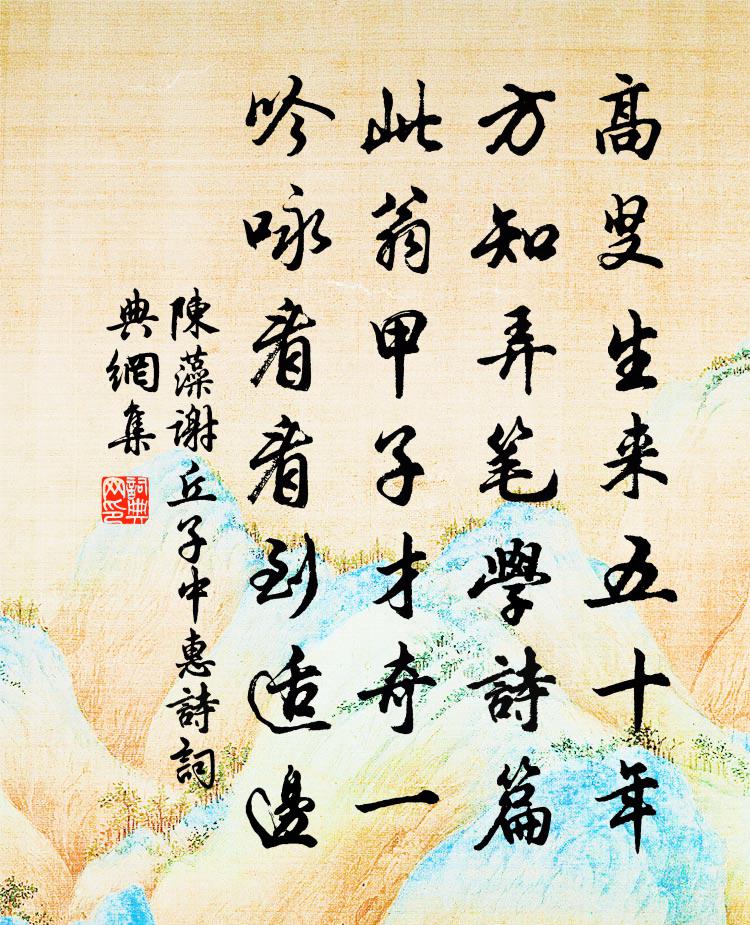 高叟生来五十年
方知弄笔學詩篇
此翁甲子才奇一
吟咏看看到适邊
陳藻謝丘子中惠詩詞
典網集
詞典网印